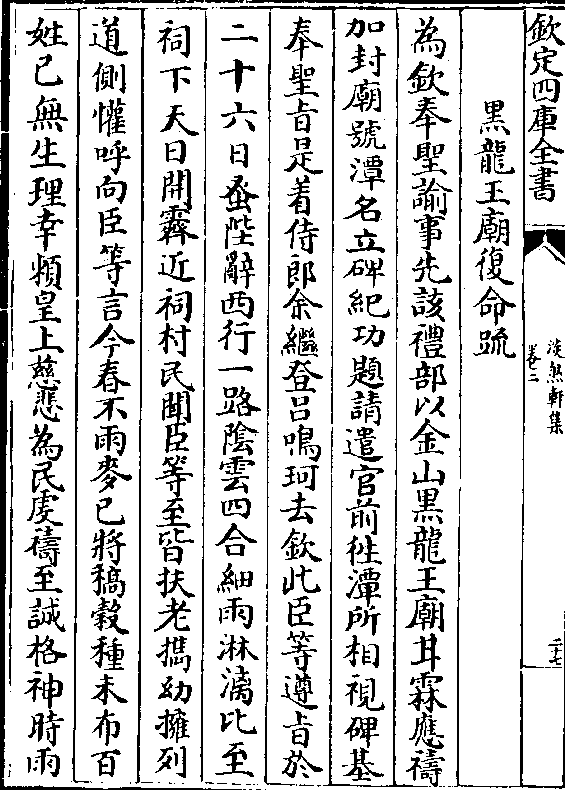 欽定四庫全書
淡然軒集
卷三
二十七
黑龍王廟復命疏
為欽奉聖諭事先該禮部以金山黑龍王廟甘霖應禱
加封廟號潭名立碑紀功題請遣官前徃潭所相視碑基
奉聖旨是着侍郎余繼登吕鳴珂去欽此臣等遵旨於
二十六日蚤陛辭西行一路隂雲四合細雨淋漓比至
祠下天日開霽近祠村民聞臣等至皆扶老攜幼擁列
道側懽呼向臣等言今春不雨麥已將稿榖種未布百
姓已無生理幸頼皇上慈悲為民䖍禱至誠格神時雨